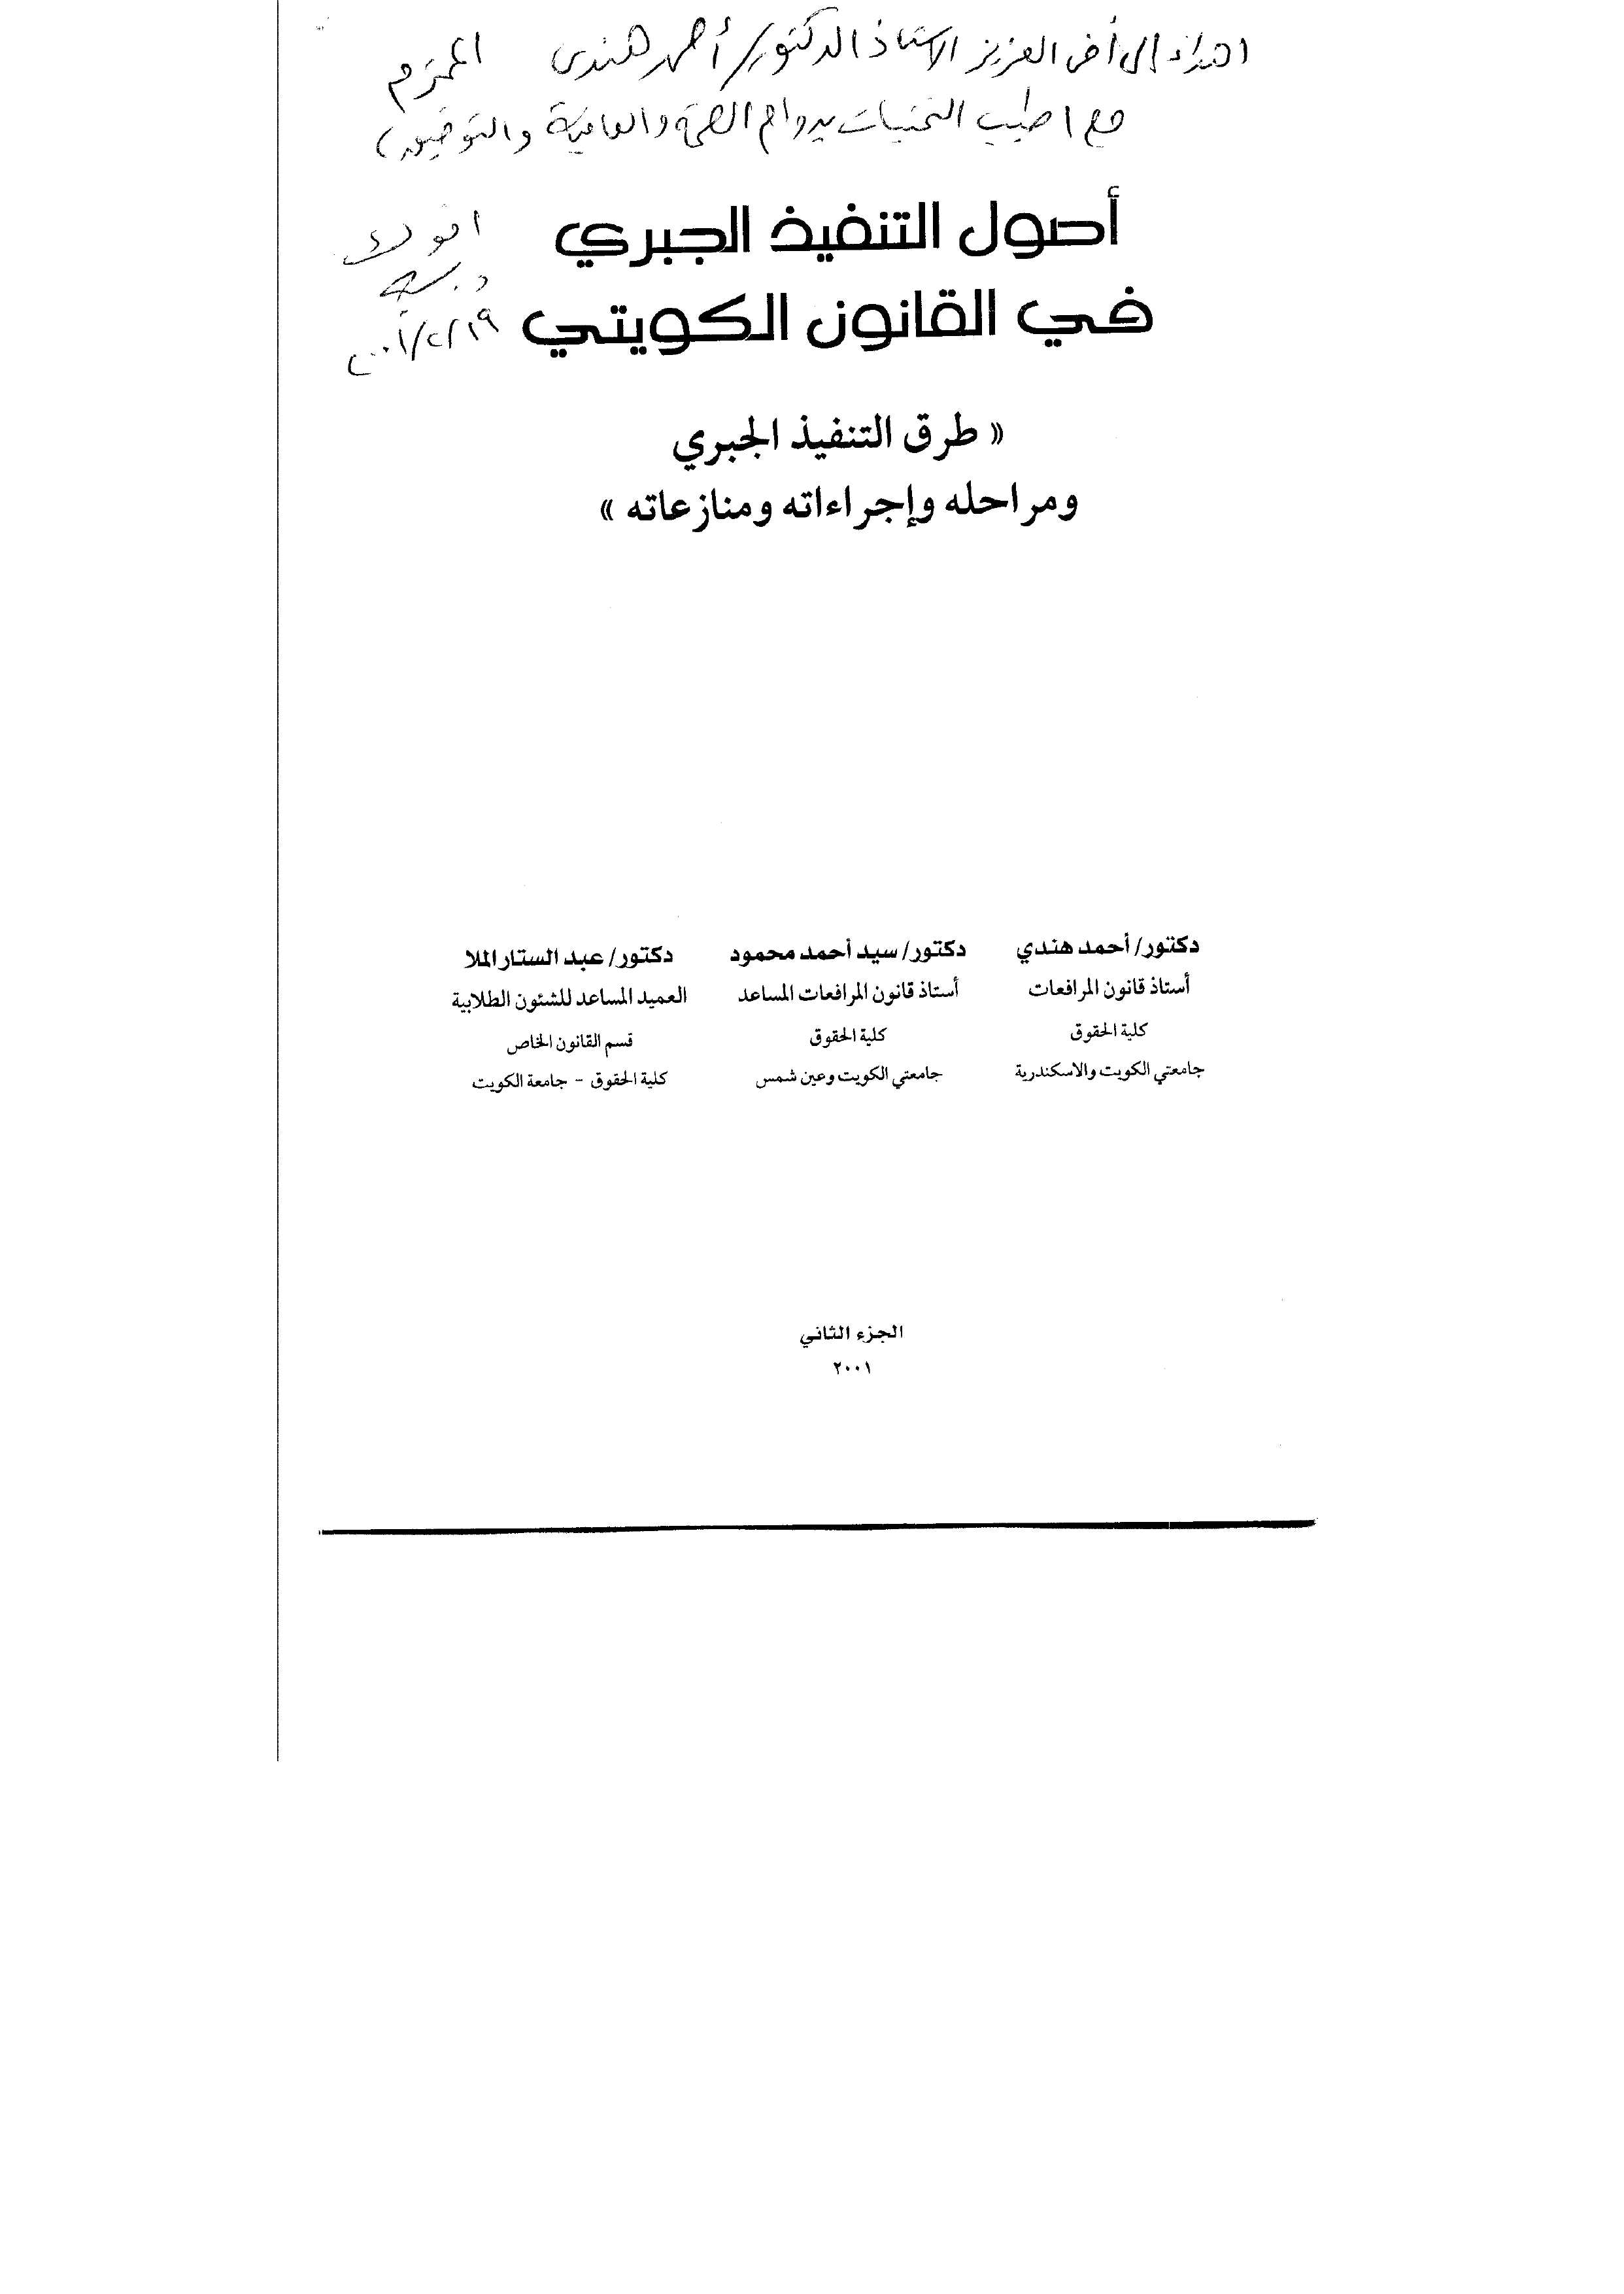 اهداء إلى أخى العزيز الاستاذ الدكتور/ أحمد هندى المحترم
مع اطيب التمنيات بدوام الصحة والعافية والتوفيق
أصول التنفيذ الجبري
اخوك
د. سيد
في القانون الكويتي
١٩/٢/٢٠٠١
« طرق التنفيذ الجبري
ومراحله وإجراءاته ومنازعاته »
دكتور/ أحمد هندي
أستاذ قانون المرافعات
كلية الحقوق
جامعتي الكويت والاسكندرية
دكتور/ سيد أحمد محمود
أستاذ قانون المرافعات المساعد
كلية الحقوق
جامعتي الكويت وعين شمس
دكتور/ عبد الستار الملا
العميد المساعد للشئون الطلابية
قسم القانون الخاص
كلية الحقوق - جامعة الكويت
الجزء الثاني
٢٠٠١